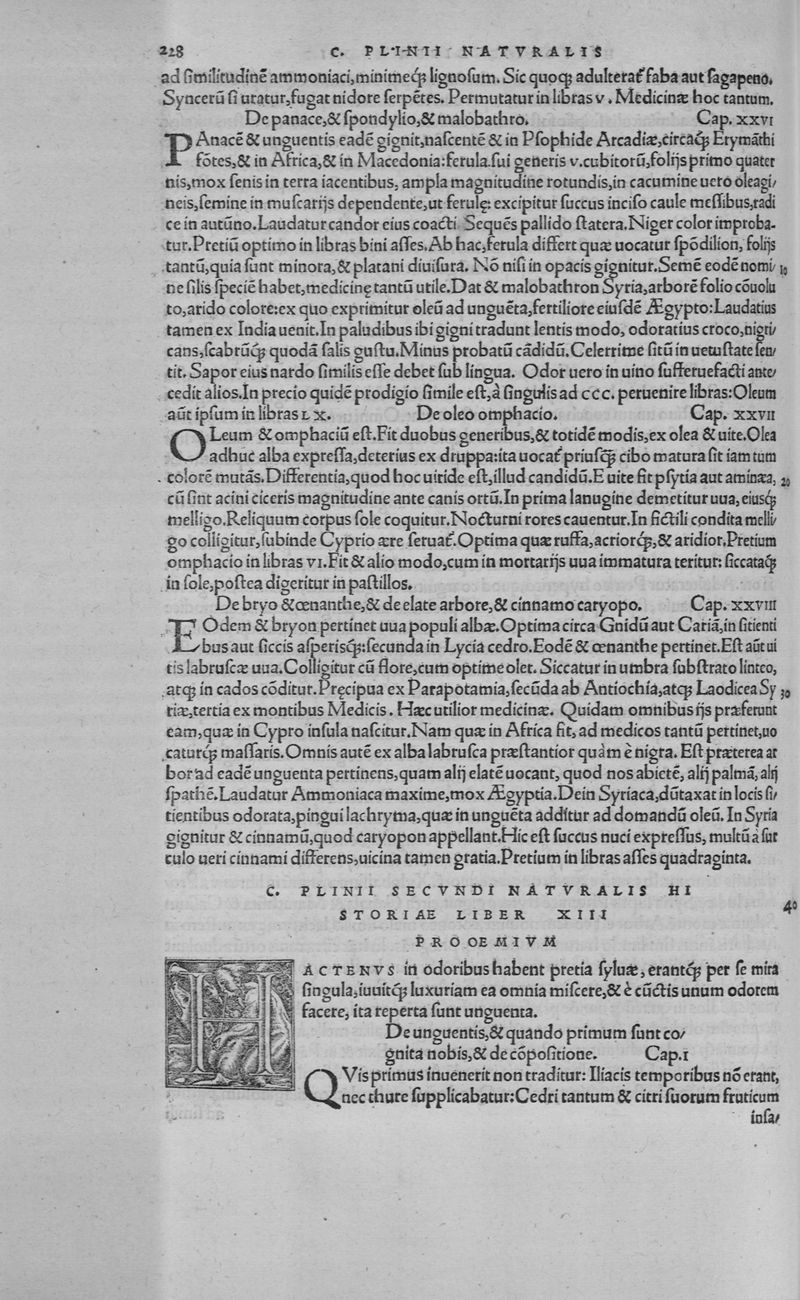 228 C. PLINII NATVRALIS
ad ſimilitudinē ammoniaci, minimeq́ꝫ lignoſum. Sic quoqꝫ adulterat᷑ faba aut ſagapeno.
Syncerū ſi uratur, fugat nidore ſerpētes. Permutatur in libras v. Medicinæ hoc tantum.
De panace, & ſpondylio, & malobathro. Cap. XXVI
PAnacē & unguentis eadē gignit, naſcentē & in Pſophide Arcadiæ, circaq́ꝫ Erymāthi
fōtes, & in Africa, & in Macedonia: ferula ſui generis v. cubitorū, folijs primo quater
nis, mox ſenis in terra iacentibus, ampla magnitudine rotundis, in cacumine uero oleagi/
neis, ſemine in muſcarijs dependente, ut ferulę: excipitur ſuccus inciſo caule meſſibus, radi
ce in autūno. Laudatur candor eius coacti. Sequēs pallido ſtatera. Niger color improba-
tur. Pretiū optimo in libras bini aſſes. Ab hac, ferula differt quæ uocatur ſpōdilion, folijs
tantū, quia ſunt minora, & platani diuiſura. Nō niſi in opacis gignitur. Semē eodē nomi/ 10
ne ſilis ſpeciē habet, medicinę tantū utile. Dat & malobathron Syria, arborē folio cōuolu
to, arido colore: ex quo exprimitur oleū ad unguēta, fertiliore eiuſdē Ægypto: Laudatius
tamen ex India uenit. In paludibus ibi gigni tradunt lentis modo, odoratius croco, nigri/
cans, ſcabrūq́ꝫ quodā ſalis guſtu. Minus probatū cādidū. Celerrime ſitū in uetuſtate ſen/
tit. Sapor eius nardo ſimilis eſſe debet ſub lingua. Odor uero in uino ſufferuefacti ante/
cedit alios. In precio quidē prodigio ſimile eſt, à ſingulis ad CCC. peruenire libras: Oleum
aūt ipſum in libras LX. De oleo omphacio. Cap. XXVII
OLeum & omphaciū eſt. Fit duobus generibus, & totidē modis, ex olea & uite. Olea
adhuc alba expreſſa, deterius ex druppa: ita uocat᷑ priuſq́ꝫ cibo matura ſit iam tum
colorē mutās. Differentia, quod hoc uiride eſt, illud candidū. E uite fit pſytia aut aminæa, 20
cū ſint acini ciceris magnitudine ante canis ortū. In prima lanugine demetitur uua, eiusq́ꝫ
melligo. Reliquum corpus ſole coquitur. Nocturni rores cauentur. In fictili condita melli/
go colligitur, ſubinde Cyprio ære ſeruat᷑. Optima quæ ruffa, acriorq́ꝫ, & aridior. Pretium
omphacio in libras VI. Fit & alio modo, cum in mortarijs uua immatura teritur: ſiccataq́ꝫ
in ſole, poſtea digeritur in paſtillos.
De bryo & œnanthe, & de elate arbore, & cinnamo caryopo. Cap. XXVIII
EOdem & bryon pertinet uua populi albæ. Optima circa Gnidū aut Cariā, in ſitienti
bus aut ſiccis aſperisq́ꝫ: ſecunda in Lycia cedro. Eodē & œnanthe pertinet. Eſt aūt ui
tis labruſcæ uua. Colligitur cū flore, cum optime olet. Siccatur in umbra ſubſtrato linteo,
atqꝫ in cados cōditur. Pręcipua ex Parapotamia, ſecūda ab Antiochia, atqꝫ Laodicea Sy 30
riæ, tertia ex montibus Medicis. Hæc utilior medicinæ. Quidam omnibus ijs præferunt
eam, quæ in Cypro inſula naſcitur. Nam quæ in Africa fit, ad medicos tantū pertinet, uo
caturq́ꝫ maſſaris. Omnis autē ex alba labruſca præſtantior quàm è nigra. Eſt præterea ar
bor ad eadē unguenta pertinens, quam alij elatē uocant, quod nos abietē, alij palmā, alij
ſpathē. Laudatur Ammoniaca maxime, mox Ægyptia. Dein Syriaca, dūtaxat in locis ſi/
tientibus odorata, pingui lachryma, quæ in unguēta additur ad domandū oleū. In Syria
gignitur & cinnamū, quod caryopon appellant. Hic eſt ſuccus nuci expreſſus, multū à ſur
culo ueri cinnami differens, uicina tamen gratia. Pretium in libras aſſes quadraginta.
C. PLINII SECVNDI NATVRALIS HI
STORIAE LIBER XIII 40
PROOEMIVM
HACTENVS in odoribus habent pretia ſyluæ, erantq́ꝫ per ſe mira
ſingula, iuuitq́ꝫ luxuriam ea omnia miſcere, & è cūctis unum odorem
facere, ita reperta ſunt unguenta.
De unguentis, & quando primum ſunt co/
gnita nobis, & de cōpoſitione. Cap. I
QVis primus inuenerit non traditur: Iliacis temporibus nō erant,
nec thure ſupplicabatur: Cedri tantum & citri ſuorum fruticum
inſa/